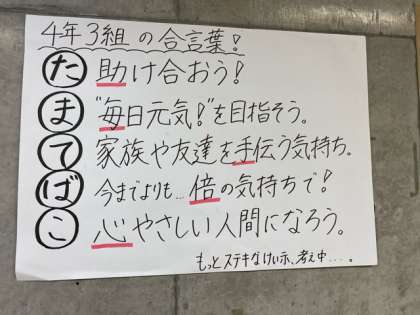 4年3組の合言葉!
た 助け合おう!
ま "毎日元気!"を目指そう。
て 家族や友達を手伝う気持ち。
ば 今までよりも…倍の気持ちで!
こ 心やさしい人間になろう。
もっとステキなけい示、考え中….。